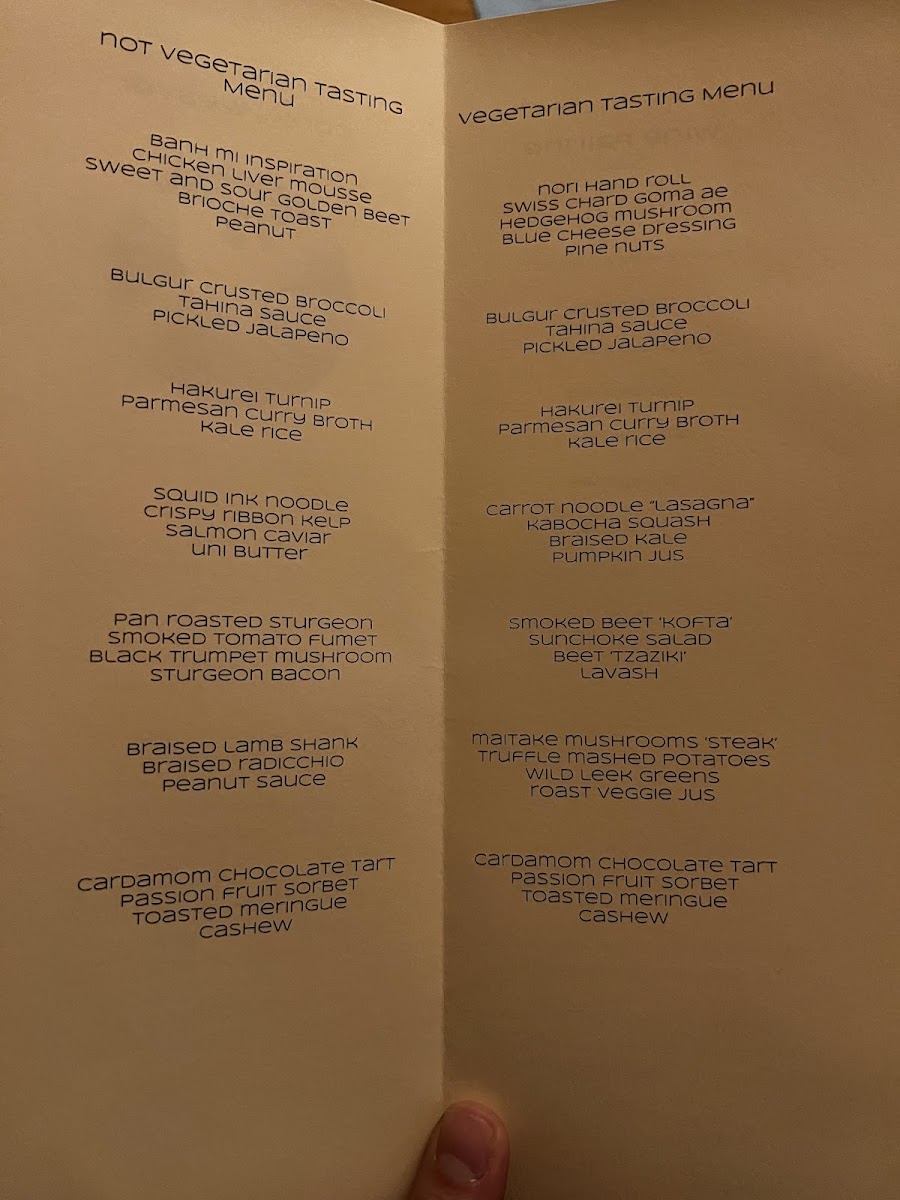 not vegetarian tasting
menu
banh mi inspiration
chicken liver mousse
sweet and sour golden beet
brioche toast
peanut
bulgur crusted broccoli
tahina sauce
pickled jalapeno
hakurei turnip
parmesan curry broth
kale rice
squid ink noodle
crispy ribbon kelp
salmon caviar
uni butter
pan roasted sturgeon
smoked tomato fumet
black trumpet mushroom
sturgeon bacon
braised lamb shank
braised radicchio
peanut sauce
cardamom chocolate tart
passion fruit sorbet
toasted meringue
cashew
vegetarian tasting menu
nori hand roll
swiss chard goma ae
hedgehog mushroom
blue cheese dressing
pine nuts
bulgur crusted broccoli
tahina sauce
pickled jalapeno
hakurei turnip
parmesan curry broth
kale rice
carrot noodle "lasagna"
kabocha squash
braised kale
pumpkin jus
smoked beet 'kofta'
sunchoke salad
beet 'tzaziki'
lavash
maitake mushrooms 'steak'
truffle mashed potatoes
wild leek greens
roast veggie jus
cardamom chocolate tart
passion fruit sorbet
toasted meringue
cashew